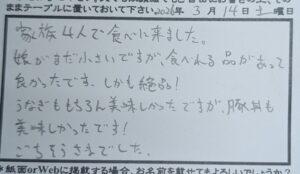 ままテーブルに置いておいて下さい。2026年 3月 14日 土 曜日
家族4人で食べに来ました。
娘がまだ小さいですが、食べれる品があって
良かったです。しかも絶品!
うなぎももちろん美味しかったですが、豚丼も
美味しかったです!
ごちそうさまでした。
*紙面orWebに掲載する場合、お名前を載せてもよろしいでしょうか?